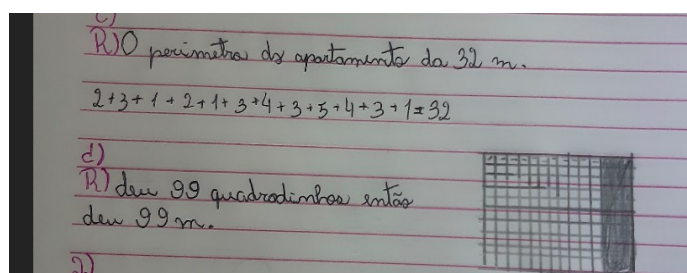 c)
R) O perimetro do apartamento da 32 m.
2+3+1+2+1+3+4+3+5+4+3+1=32
d)
R) deu 99 quadradinhos então
deu 99 m.